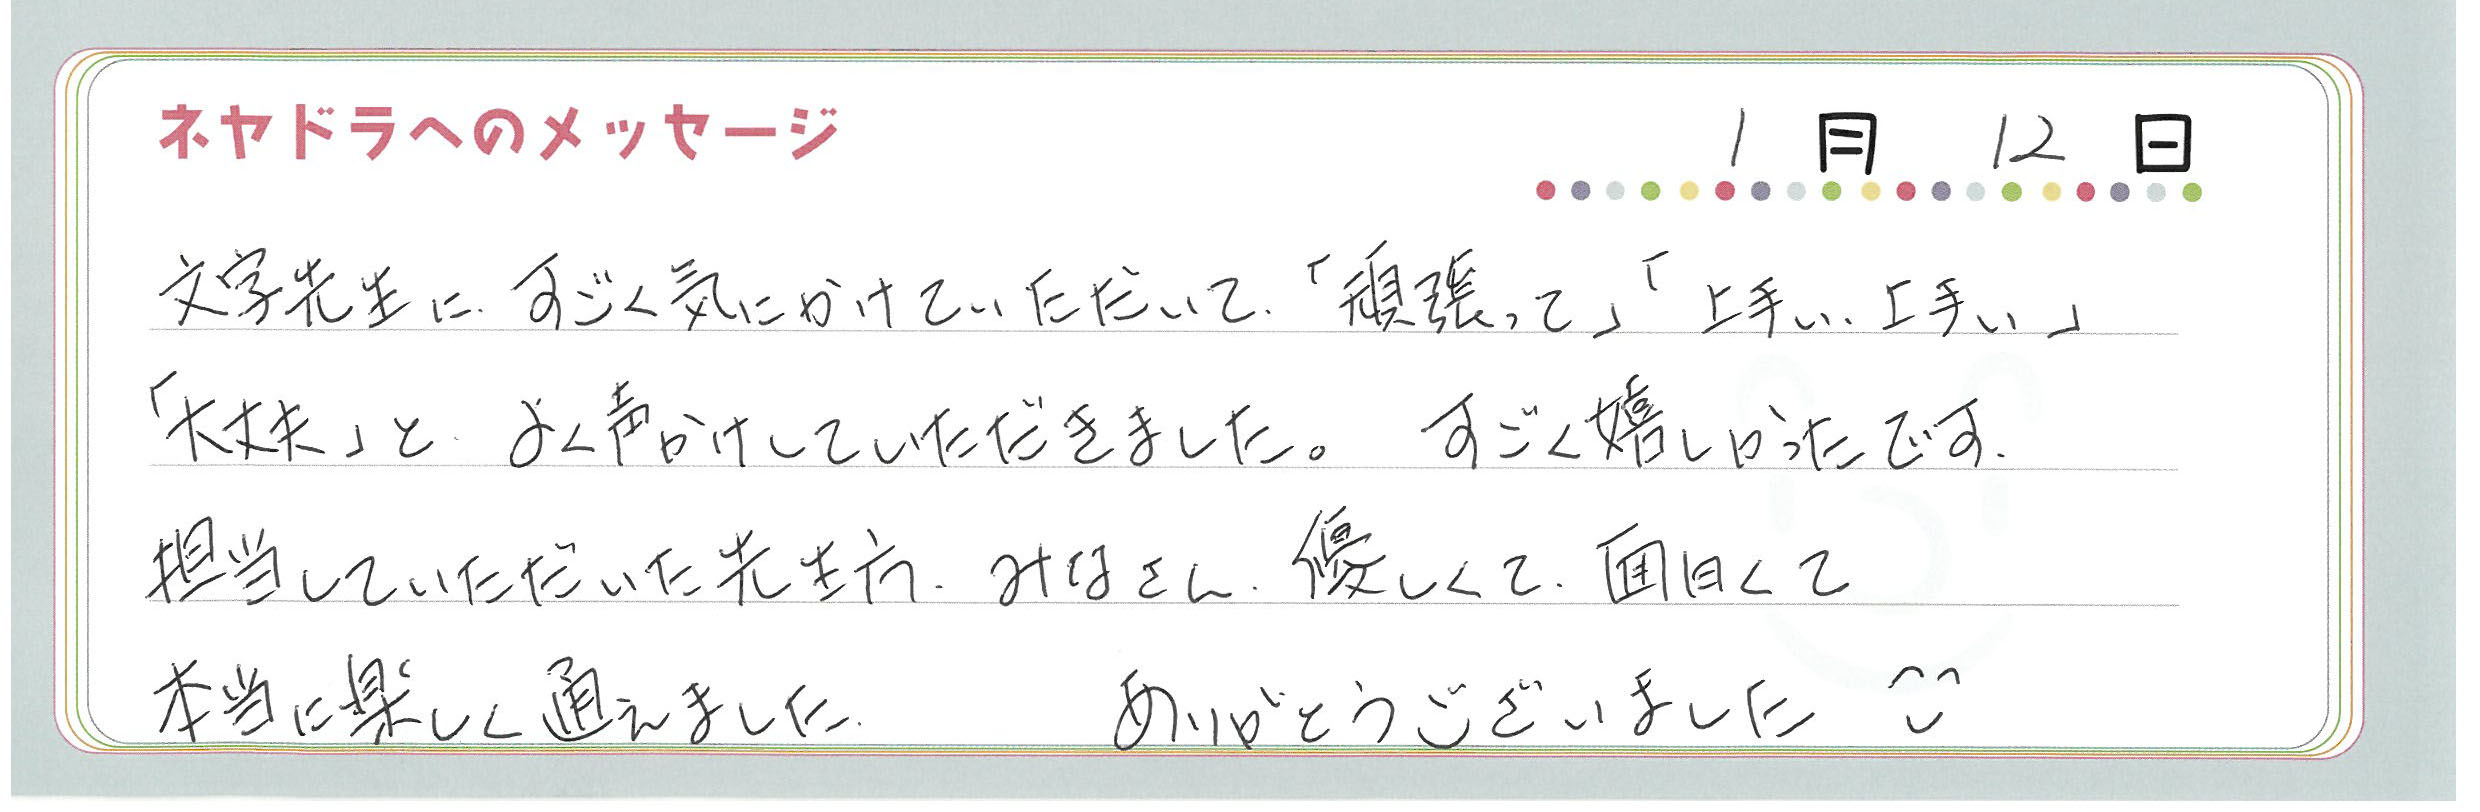 ネヤドラへのメッセージ
1月 12日
文字先生に、すごく気にかけていただいて、「頑張って」「上手い、上手い」
「大丈夫」と、よく声かけしていただきました。 すごく嬉しかったです。
担当していただいた先生方、みなさん、優しくて、面白くて
本当に楽しく通えました。 ありがとうございました